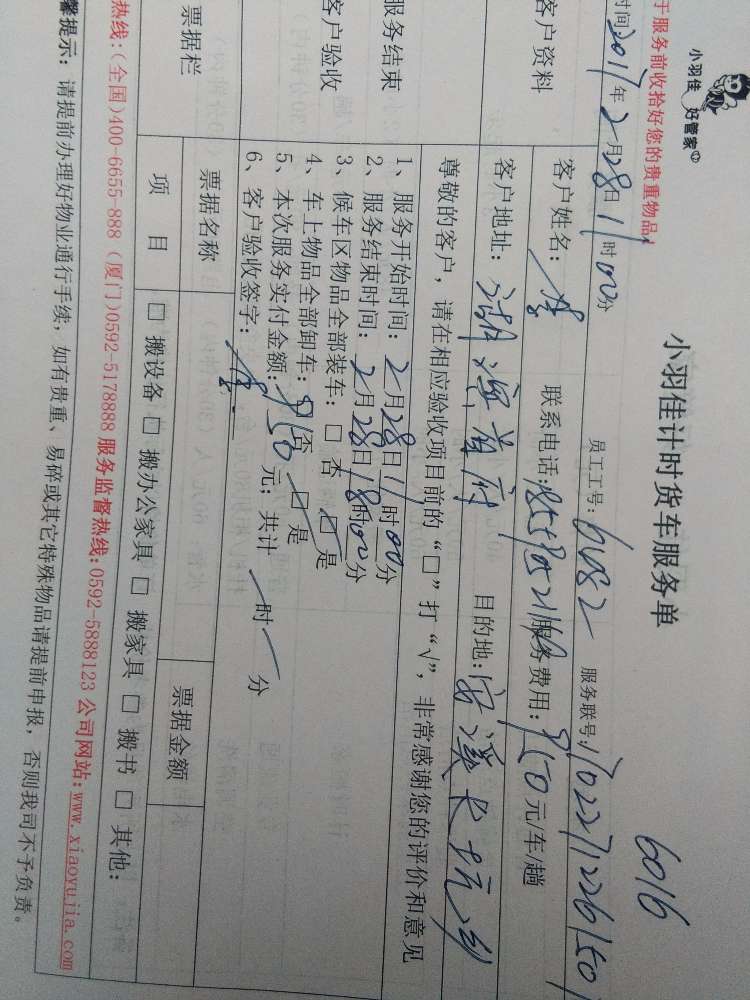 小羽佳
好管家
小羽佳计时货车服务单
6016
于服务前收拾好您的贵重物品!
时间2017年2月28日11时00分
员工工号:6082
服务联号:17022712261501
客户资料
客户姓名:
联系电话:
服务费用:950元/车/趟
客户地址:
目的地:安溪长坑乡
尊敬的客户,请在相应验收项目前的“□”打“√”,非常感谢您的评价和意见
服务结束
客户验收
1、服务开始时间:2月28日11时00分
2、服务结束时间:2月28日18时00分
3、候车区物品全部装车:□ 否 □ 是
4、车上物品全部卸车:□ 否 □ 是
5、本次服务实付金额:950元;共计 时 分
6、客户验收签字:
票据栏
票据名称
票据金额
项 目
□ 搬设备 □ 搬办公家具 □ 搬家具 □ 搬书 □ 其他:
热线:(全国)400-6655-888 (厦门)0592-5178888 服务监督热线:0592-5888123 公司网站:www.xiaoyujia.com
馨提示:请提前办理好物业通行手续,如有贵重、易碎或其它特殊物品请提前申报,否则我司不予负责。